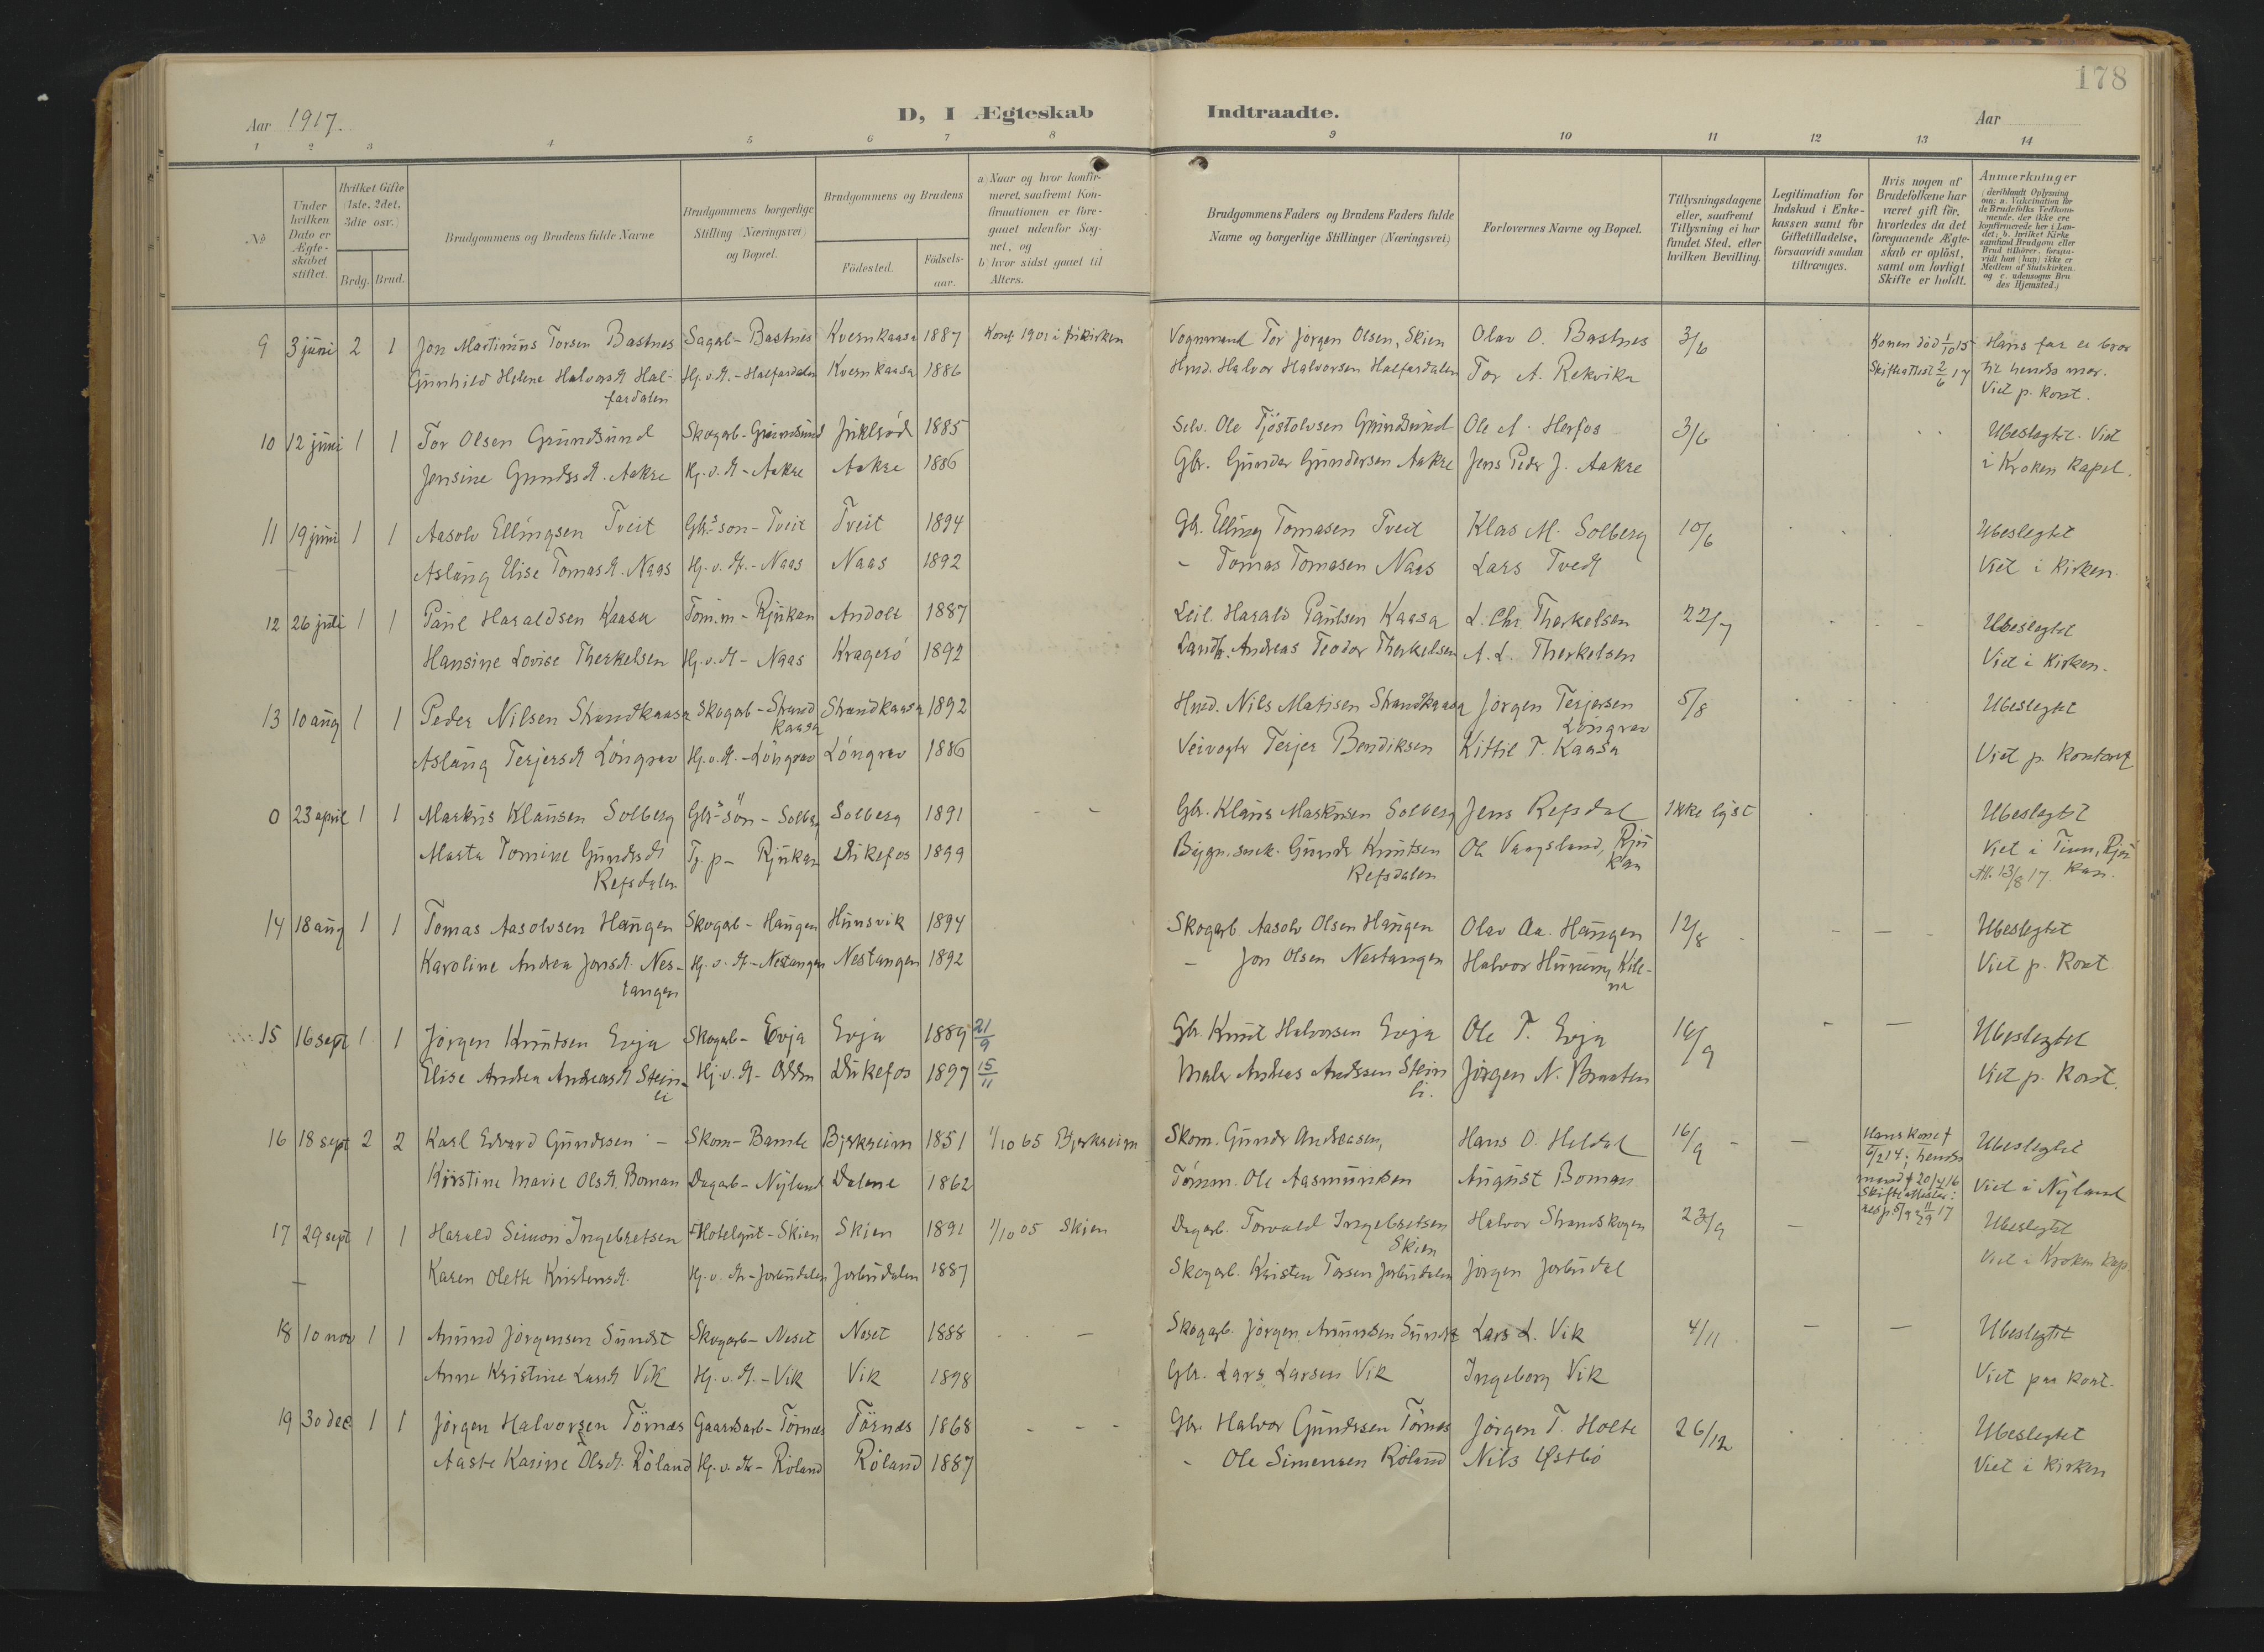 178
Aar 1917.
D, I Ægteskab Indtraadte.
Aar
1 2 3 4 5 6 7 8 9 10 11 12 13 14
No
Under hvilken Dato er Ægteskabet stiftet.
Hvilket Gifte (1ste, 2det, 3die osv.)
Brdg. Brud.
Brudgommens og Brudens fulde Navne
Brudgommens borgerlige Stilling (Næringsvei) og Bopæl.
Brudgommens og Brudens
Födested.
Födselsaar.
a) Naar og hvor konfirmeret, saafremt Konfirmationen er foregaaet udenfor Sognet, og
b) hvor sidst gaaet til Alters.
Brudgommens Faders og Brudens Faders fulde Navne og borgerlige Stillinger (Næringsvei)
Forlovernes Navne og Bopæl.
Tillysningsdagene eller, saafremt Tillysning ei har fundet Sted, efter hvilken Bevilling.
Legitimation for Indskud i Enkekassen samt for Giftetilladelse, forsaavidt saadan tiltrænges.
Hvis nogen af Brudefolkene har været gift för, hvorledes da det foregaaende Ægteskab er oplöst, samt om lovligt Skifte er holdt.
Anmærkninger
(deriblandt Oplysning om: a. Vakcination for de Brudefolks Vedkommende, der ikke ere konfirmerede her i Landet; b. hvilket Kirkesamfund Brudgom eller Brud tilhører, forsaavidt han (hun) ikke er Medlem af Statskirken, og c. udensogns Brudes Hjemsted.)
9 3 juni 2 1 Jon Martinius Torsen Bastnes Sagarb - Bastnes Kvernkaasa 1887 Konf. 1901 i frikirken Vognmand Tor Jörgen Olsen, Skien Olav O. Bastnes 3/6 Konen död 1/10 15 Hans far er bror
Gunhild Helene Halvorsd. Halfardalen Hj. v. d. - Halfardalen Kvernkaasa 1886 Hmd. Halvor Halvorsen Halfardalen Tor A. Rekvika Skifteattest 2/6 17 til hendes mor.
Viet p. kont.
10 12 juni 1 1 Tor Olsen Grundsund Skogarb - Grundsund 1885 Selv. Ole Tjöstolvsen Grundsund Ole A. Herfos 3/6 Ubeslegtet. Viet
Jensine Gundsd. Aakre Hj. v. d. - Aakre Aakre 1886 Gbr. Gunder Gundersen Aakre Jens Peder J. Aakre i Kroken Kapel.
11 19 juni 1 1 Aasolv Ellingsen Tveit Gbr.s son - Tveit Tveit 1894 Gb. Elling Tomasen Tveit Klas M. Solberg 10/6 Ubeslegtet
Aslaug Elise Tomasd. Naas Hj. v. d. - Naas Naas 1892 - Tomas Tomasen Naas Lars Tvedt Viet i Kirken
12 26 juli 1 1 Paul Haraldsen Kaasa Tom.m - Rjukan 1887 Leil. Harald Paulsen Kaasa L. Chr. Therkelsen 22/7 Ubeslegtet
Hansine Lovise Therkelsen Hj. v. d. - Naas Kragerö 1892 Landh. Andreas Teodor Therkelsen A. L. Therkelsen Viet i Kirken.
13 10 aug 1 1 Peder Nilsen Strandkaasa Skogarb - Strandkaasa Strandkaasa 1892 Hmd. Nils Matisen Strandkaasa Jörgen Terjersen Löngrav 5/8 Ubeslegtet
Aslaug Terjersd. Löngrav Hj. v. d. - Löngrav Löngrav 1886 Veivogter Terjer Bendiksen Kittil T. Kaasa Viet p. Kontoret
0 23 april 1 1 Markus Klausen Solberg Gbr.s sön - Solberg Solberg 1891 - - Gbr. Klaus Markusen Solberg Jens Refsdal Ikke lyst Ubeslegtet
Marta Tomine Gundersd. Refsdalen Tj. p - Rjukan Dukefos 1899 Bygn. snek. Gunder Knutsen Refsdalen Ole Vaagsland, Rjukan Viet i Tinn, Rjukan.
Att. 13/8 17.
14 18 aug 1 1 Tomas Aasolvsen Haugen Skogarb - Haugen Hunsvik 1894 Skogarb Aasolv Olsen Haugen Olav Aa. Haugen 12/8 - - - - Ubeslegtet
Karoline Andrea Jonsd. Nestangen Hj. v. d. - Nestangen Nestangen 1892 - Jon Olsen Nestangen Halvor Hurum, Kilene Viet p. Kont.
15 16 sept 1 1 Jörgen Knutsen Evja Skogarb - Evja Evja 1889 21/9 Gb Knut Halvorsen Evja Ole T. Evja 16/9 - - Ubeslegtet
Elise Andrea Andreasd. Steinli Hj. v. d. - Dukefos 1897 15/11 Maler Andreas Andssen Steinli. Jörgen N. Braaten Viet p. Kont.
16 18 sept 2 2 Karl Edvard Gundersen - Skom - Bamle Bjerkreim 1851 1/10 65 Bjerkreim Skom. Gunder Andreasen, Hans O. Heldal 16/9 - - Hans kone † 6/2 14; hendes Ubeslegtet
Kirstine Marie Olsd. Boman Dagarb - Nyland Dalene 1862 Tömm. Ole Aasmundsen August Boman mand † 20/4 16 Viet i Nyland
Skifteattester:
resp. 5/9 & 11/9 17
17 29 sept 1 1 Harald Simon Ingebretsen Hotelgut - Skien Skien 1891 1/10 05 Skien Dagarb. Torvald Ingebretsen Skien Halvor Strandskogen 23/9 - Ubeslegtet
Karen Olette Kristensd. Hj. v. d. - Jorbudalen Jorbudalen 1887 Skogarb. Kristen Torsen Jorbudalen Jörgen Jorbudal Viet i Kroken Kap.
18 10 nov 1 1 Amund Jörgensen Sundet Skogarb - Neset Neset 1888 - Skogarb. Jörgen Amundsen Sundet Lars L. Vik 4/11 - - Ubeslegtet
Anne Kristine Larsd. Vik Hj. v. d. - Vik Vik 1898 Gbr. Lars Larsen Vik Ingeborg Vik Viet paa kont.
19 30 dec 1 1 Jörgen Halvorsen Törnes Gaardsarb - Törnes Törnes 1868 - - - Gbr. Halvor Gundersen Törnes Jörgen T. Holte 26/12 Ubeslegtet
Aaste Karine Olsd. Röland Hj. v. d. - Röland Röland 1887 - Ole Simensen Röland Nils Østbö Viet i Kirken